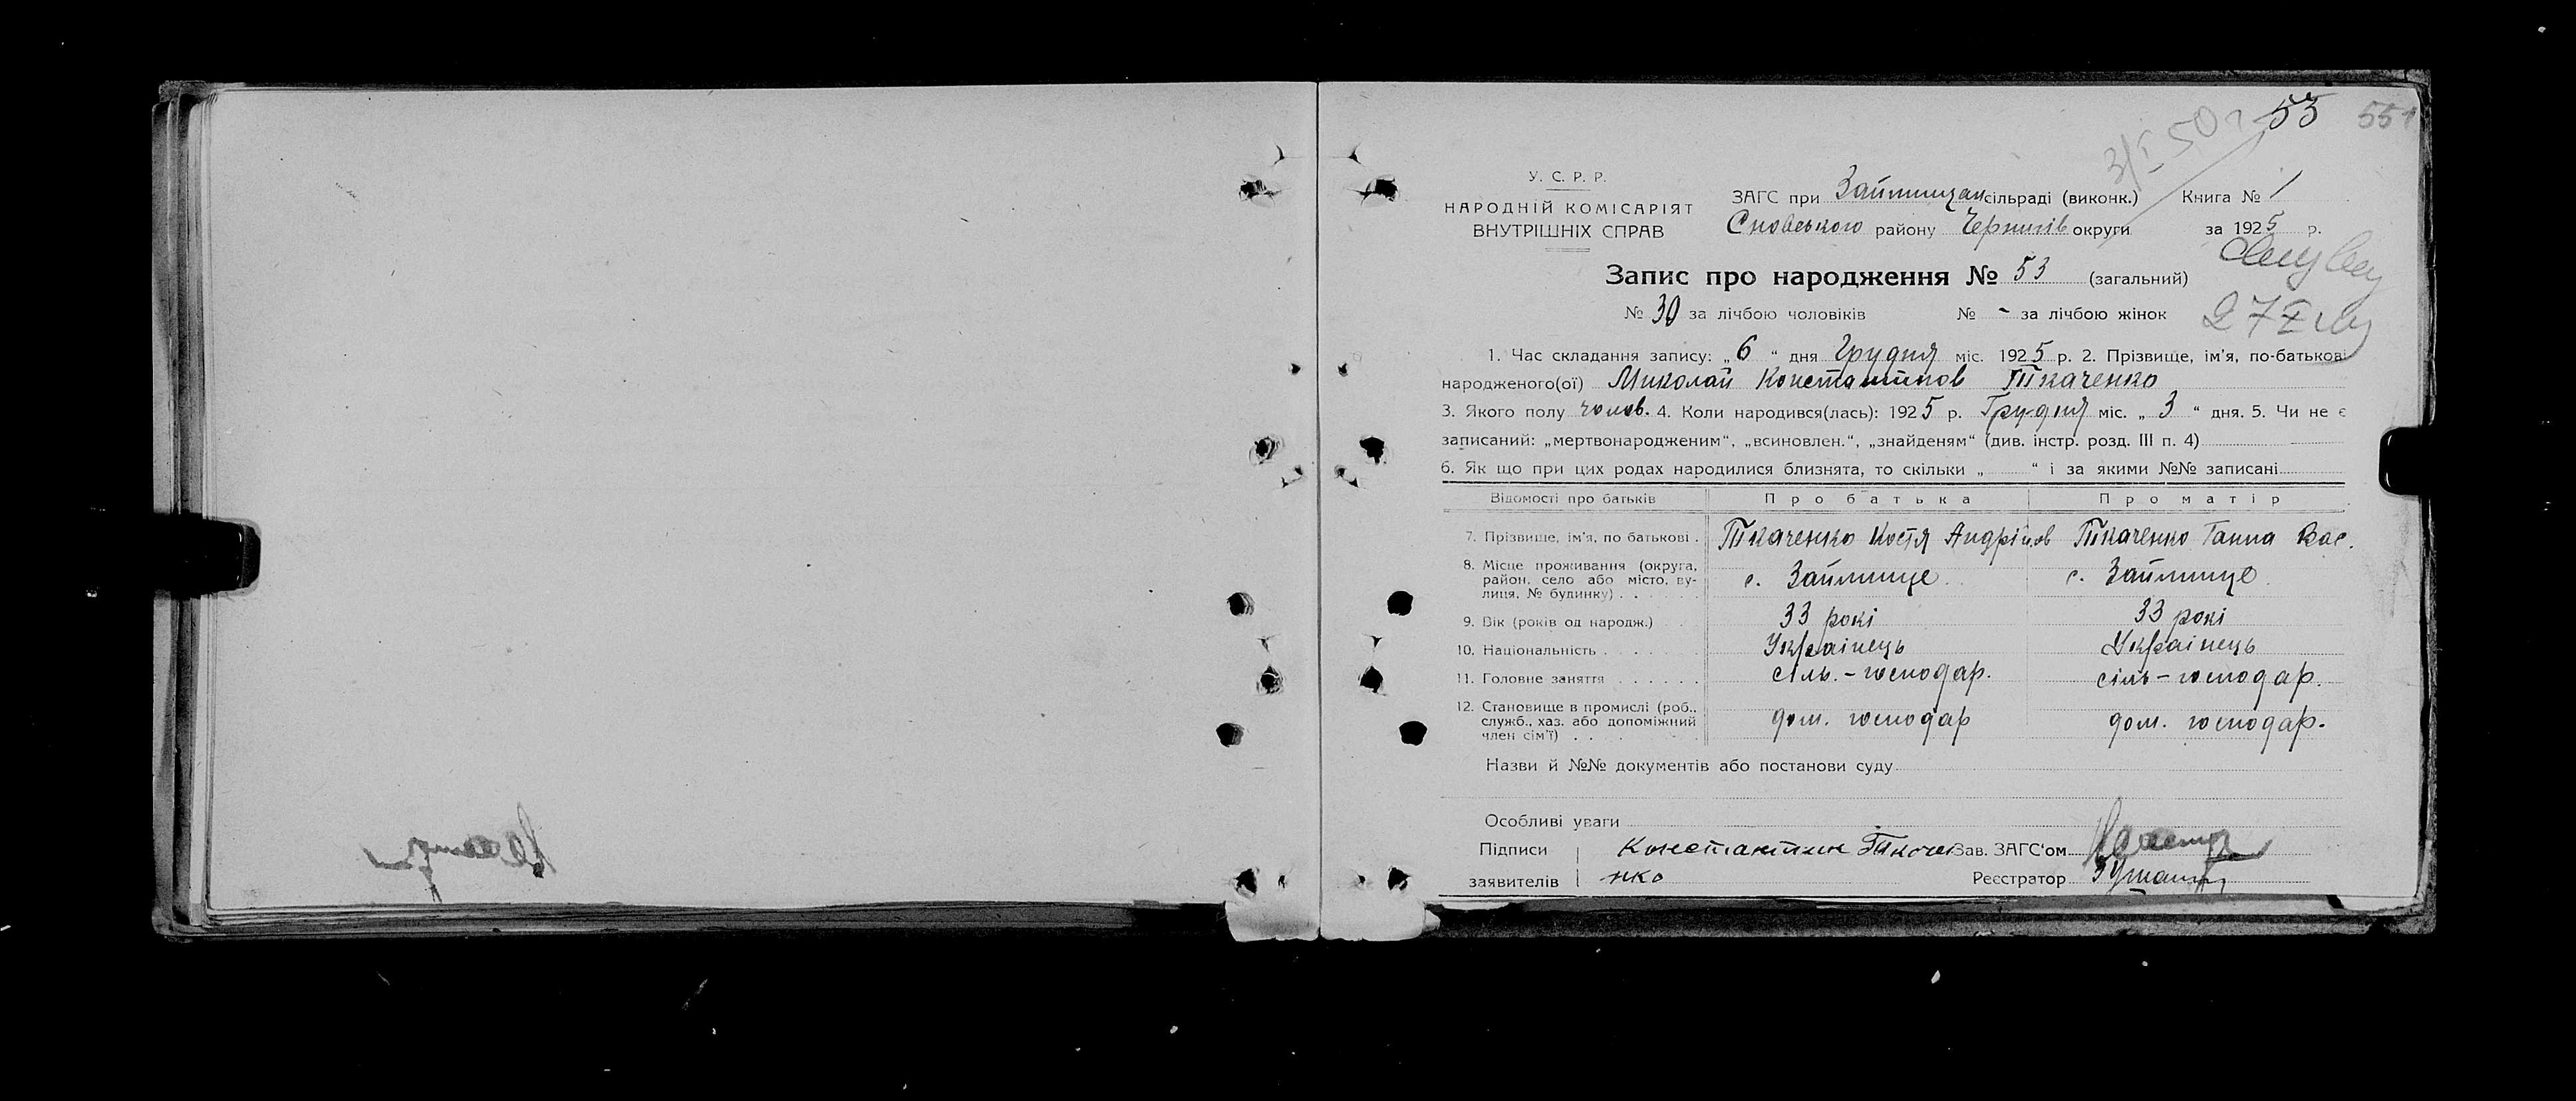 55 551
3/I 50 г
У. С. Р. Р.
НАРОДНІЙ КОМІСАРІЯТ
ВНУТРІШНІХ СПРАВ
ЗАГС при Займищан сільраді (виконк.) Книга № 1
Сновського району Чернигів округи за 1925 р.
Запис про народження № 53 (загальний)
27
№ 30 за лічбою чоловіків № - за лічбою жінок
1. Час складання запису: „ 6 “ дня Грудня міс. 1925 р. 2. Прізвище, ім'я, по-батькові
народженого(ої) Миколай Константинов Ткаченко
3. Якого полу чолов. 4. Коли народився(лась): 1925 р. Грудня міс. „ 3 “ дня. 5. Чи не є
записаний: „мертвонародженим“, „всиновлен.“, „знайденям“ (див. інстр. розд. III п. 4)
6. Як що при цих родах народилися близнята, то скільки „ “ і за якими №№ записані
Відомості про батьків Про батька Про матір
7. Прізвище, ім'я, по батькові . Ткаченко Костя Андріїнов Ткаченко Ганна Вас.
8. Місце проживання (округа,
район, село або місто, ву-
лиця, № будинку) . . . . . с. Займище с. Займище
9. Вік (років од народж.) 33 рокі 33 рокі
10. Національність . . . . . Українець Українець
11. Головне заняття . . . . . . сіль.-господар. сіль-господар.
12. Становище в промислі (роб.,
служб., хаз. або допоміжний
член сім'ї) . . . дом. господар дом. господар.
Назви й №№ документів або постанови суду
Особливі уваги
Підписи Константин Ткаче Зав. ЗАГС'ом
заявителів нко Реєстратор